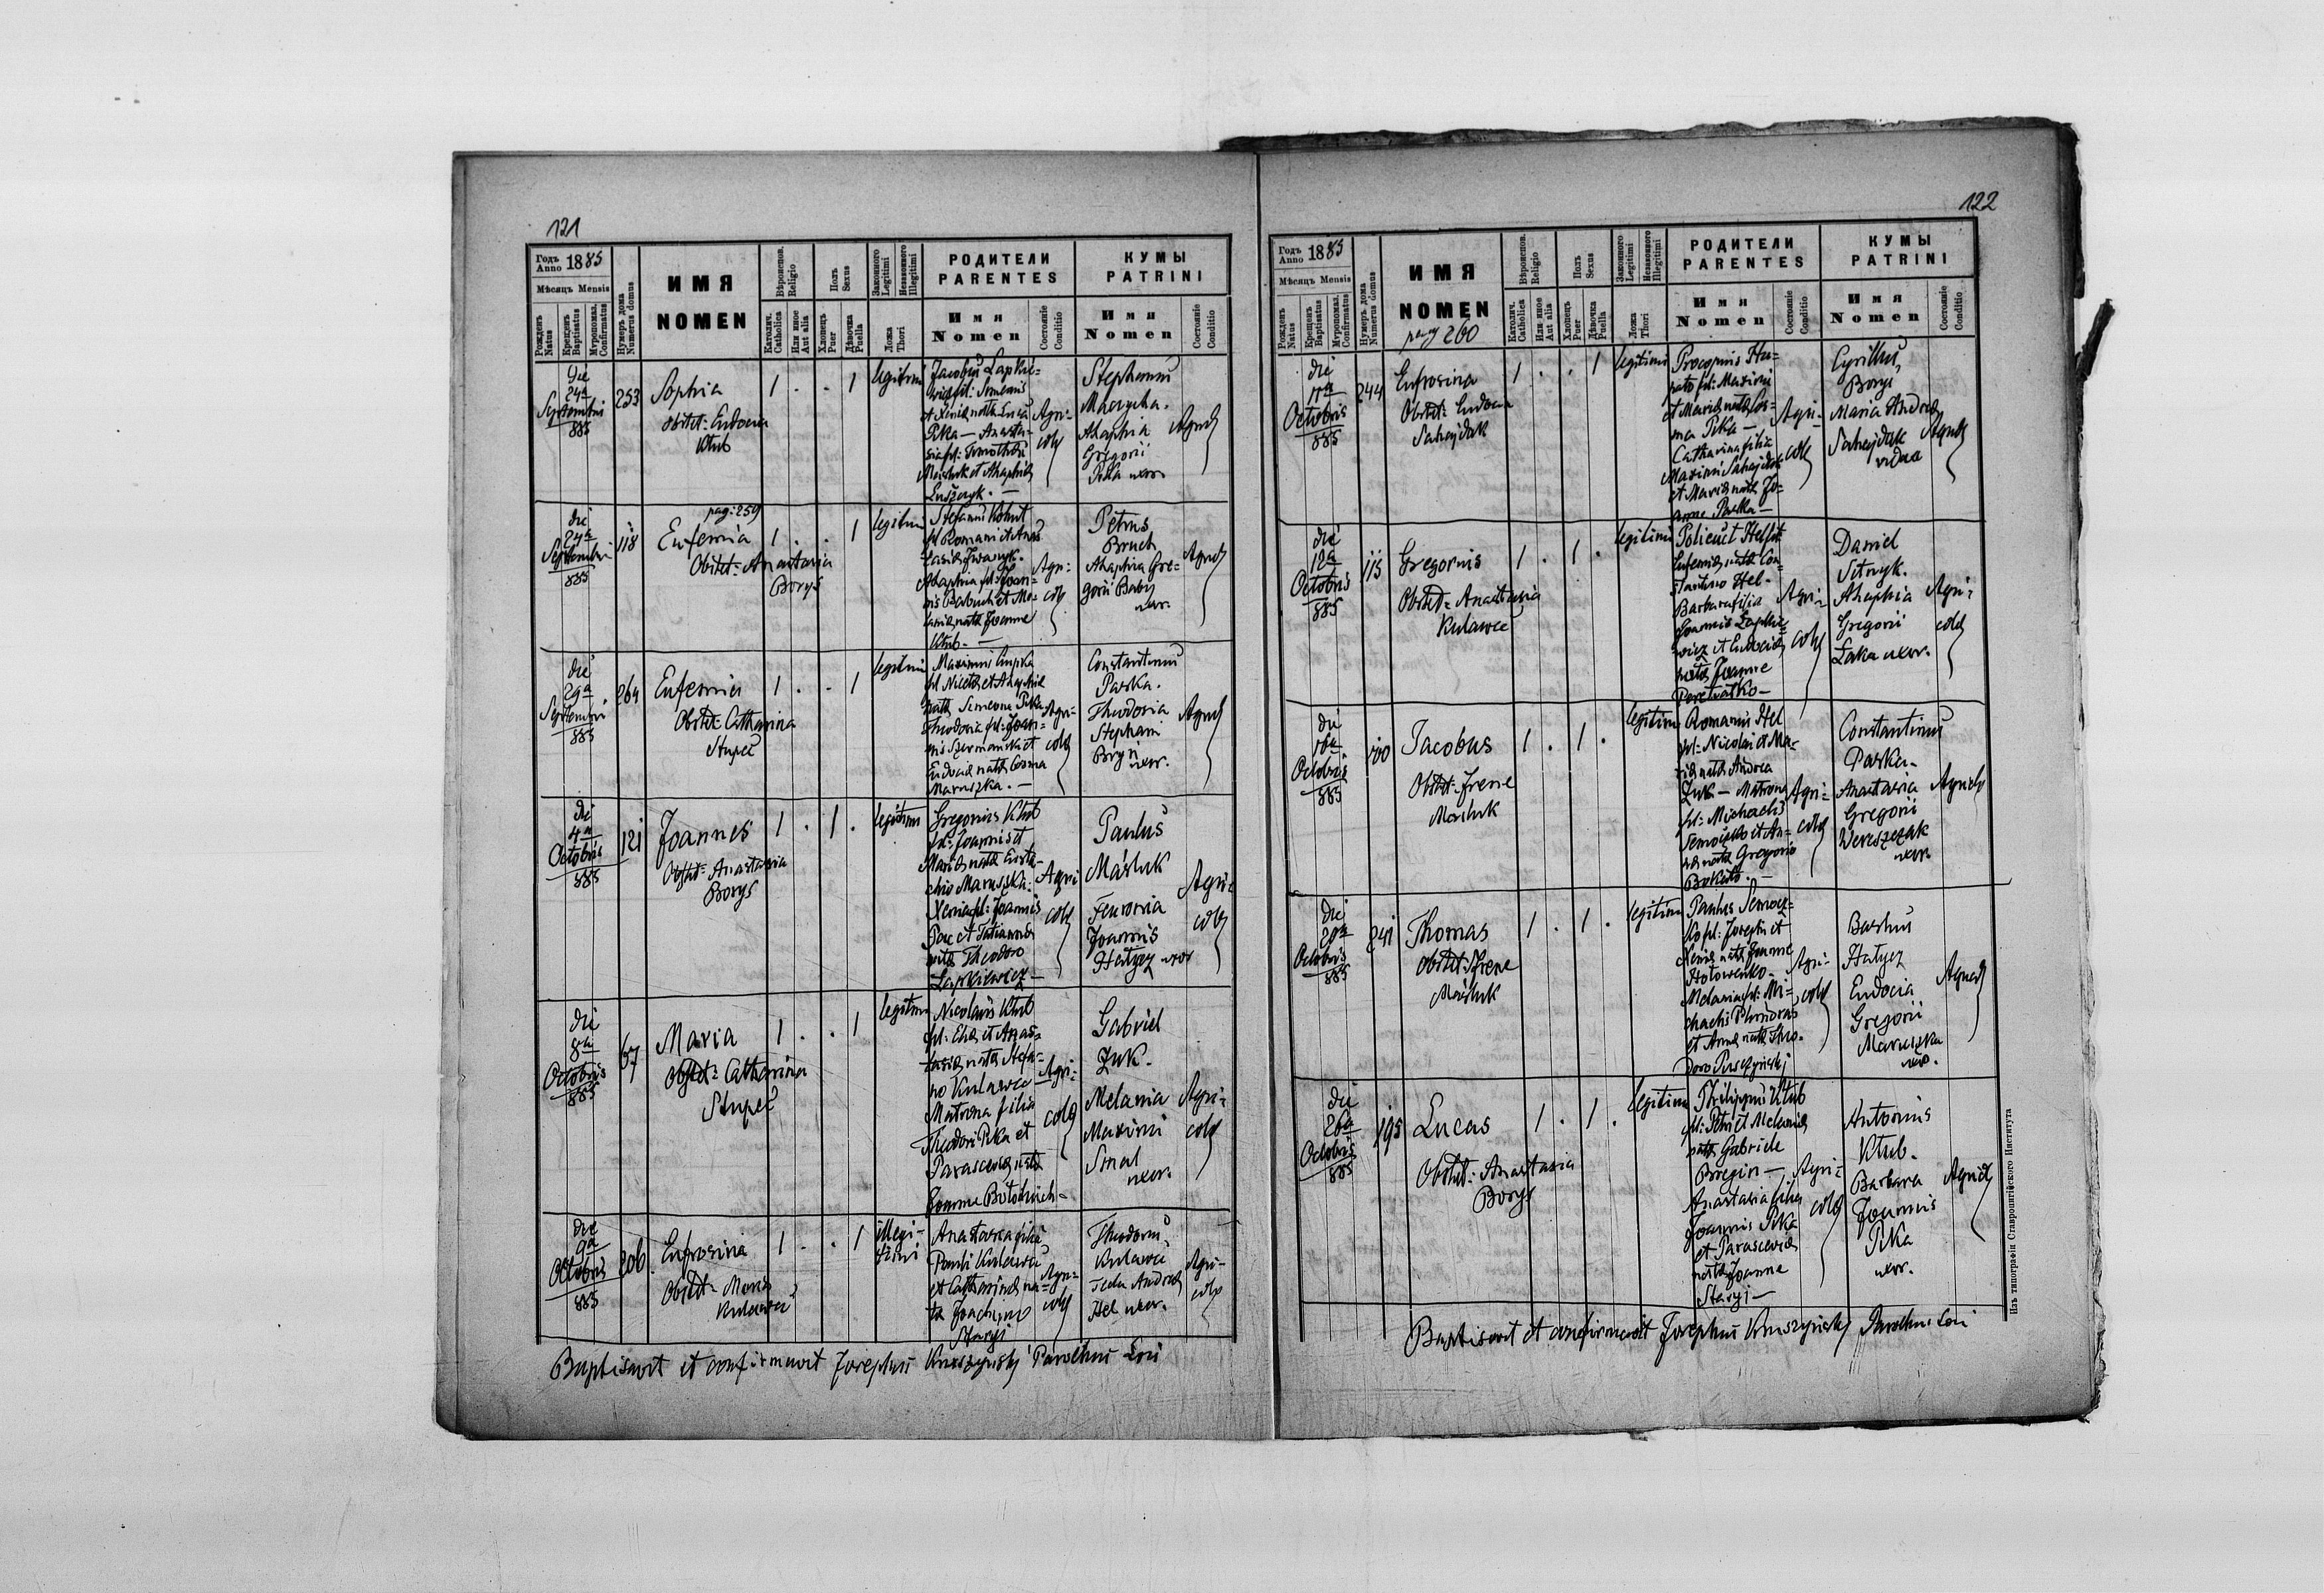 121
Годъ
Anno 1885
Мѣсяцъ Mensis
Рожденъ
Natus
Крещенъ
Baptisatus
Мѵропомаз.
Confirmatus
Нумеръ дома
Numerus domus
ИМЯ
NOMEN
Вѣроиспов.
Religio
Католич.
Catholica
Или иное
Aut alia
Полъ
Sexus
Хлопецъ
Puer
Дѣвочка
Puella
Законного
Legitimi
Незаконного
Illegitimi
Ложа
Thori
РОДИТЕЛИ
PARENTES
Имя
Nomen
Состояніе
Conditio
КУМЫ
PATRINI
Имя
Nomen
Состояніе
Conditio
die
24a
Septembri
885
253
Sophia
obstet: Eudocia
Kłub
1 . . 1
legitimi
Jacobus Lapkie=
wicz fil: Simeonis
et Xenia nata Luca
Pika — Anasta=
sia fil: Timothei
Maśluk et Ahaphia
Agri=
colae
Stephanus
Ahaphia
Gregorii
Pika uxor
Agricolae
die
27a
Septembri
885
118
pag: 259
Eufemia
Obstet: Anastasia
Borys
1 . . 1
legitimi
fil Romani et Anas
tasia Iwanyk.
Ahaphia fil: Joan=
nis Babuch et Me=
lania nata Joanne
Kłub —
Agri=
colae
Petrus
Bruch
Ahaphia Gre=
gorii Baby
uxor.
Agricolae
die
29a
Septembri
885
264
Eufemia
Obstet: Catharina
Stupeć
1 . . 1
legitimi
fil Niceta et Ahaphia
nata Simeone Pika
Theodosia fil: Joan=
nis Szermanska et
Eudocia nata Cosma
Maruszka. —
Agri=
colae
Constantinus
Paska.
Theodosia
Stephani
Bryn
uxor.
Agricolae
die
4a
Octobris
885
121
Joannes
Obstet: Anastasia
Borys
1 . 1 .
legitimi
Gregorius Kłub
fil: Joannis et
Maria nata Eusta=
chio Maruszka.
Xenia fil: Joannis
Pac et Tatianna
nata Theodoro
Lapkiewicz —
Agri
colae
Paulus
Maśluk
Fevronia
Joannis
Hałycz uxor
Agri=
colae
die
8a
Octobris
885
67
Maria
Obstet: Catharina
Stupeć
1 . . 1
legitimi
Nicolaus Kłub
fil: Elia et Anas=
tasia nata Stefa=
no Kulawce
Matrona filia
Theodori Pika et
Parascevia nata
Joanne
Agri=
colae
Gabriel
Żuk.
Melania
Maximi
Smal
uxor.
Agri=
colae
die
9a
Octobris
885
206
Eufrosina
Obstet: Maria
Kulawce
1 . . 1
illegi-
timi
Anastasia filia
Pauli Kulawce
et Catharina na=
ta Joachimo
Staryj
Agri=
colae
Theodorus
Kulawce
Tecla Andreae
Hel uxor.
Agri-
colae
Baptisavit et confirmavit Josephus Kruszyński Parochus Loci
122
Годъ
Anno 1885
Мѣсяцъ Mensis
Рожденъ
Natus
Крещенъ
Baptisatus
Мѵропомаз.
Confirmatus
Нумеръ дома
Numerus domus
ИМЯ
NOMEN
pag 260
Вѣроиспов.
Religio
Католич.
Catholica
Или иное
Aut alia
Полъ
Sexus
Хлопецъ
Puer
Дѣвочка
Puella
Законного
Legitimi
Незаконного
Illegitimi
Ложа
Thori
РОДИТЕЛИ
PARENTES
Имя
Nomen
Состояніе
Conditio
КУМЫ
PATRINI
Имя
Nomen
Состояніе
Conditio
die
11a
Octobris
885
244
Eufrosina
Obstet: Eudocia
Sahajdak
1 . . 1
legitimi
Procopius Hu=
nato fil: Maximi
et Maria nata Cos=
ma Pika —
Catharina filia
Maximi Sahajdak
et Maria nata Jo=
anne Paska —
Agri=
colae
Cyrillus
Borys
Maria Andreae
Sahajdak
vidua
Agricolae
die
12a
Octobris
885
115
Gregorius
Obstet: Anastasia
Kulawce
1 . 1 .
legitimi
Policuct Hel fil:
Eufemia nata Con=
stantino Hel —
Barbara filia
Joannis Lapkie
wicz et Eudocia
nata Joanne
Peretiatko —
Agri=
colae
Daniel
Ahaphia
Gregorii
Łaka uxor.
Agri=
colae
die
16a
Octobris
885
100
Jacobus
Obstet: Irene
Maśluk
1 . 1 .
legitimi
Romanus Hel
fil: Nicolai et Ma=
ria nata Andrea
Żuk — Matrona
fil: Michaelis
Semoczko et An=
na nata Gregorio
Agri=
colae
Constantinus
Paska.
Anastasia
Gregorii
Wereszczak
uxor.
Agricolae
die
20a
Octobris
885
241
Thomas
Obstet: Irene
Maśluk
1 . 1 .
legitimi
Paulus Semocz=
ko fil: Josephi et
Xenia nata Joanne
Hołowenko —
Melania fil: Mi=
chaelis Pundras
et Anna nata Theo=
doro Puszczyński
Agri=
colae
Basilius
Hałycz
Eudocia
Gregorii
Maruszka
uxor.
Agricolae
die
26a
Octobris
885
195
Lucas
Obstet: Anastasia
Borys
1 . 1 .
legitimi
Philippus Kłub
fil: Petri et Melania
nata Gabriele
Bregin —
Anastasia filia
Joannis Pika
et Parascevia
nata Joanne
Staryj —
Agri=
colae
Antonius
Kłub.
Barbara
Joannis
Pika
uxor.
Agricolae
Baptisavit et confirmavit Josephus Kruszyński Parochus Loci
Изъ типографіи Ставропигійского Института